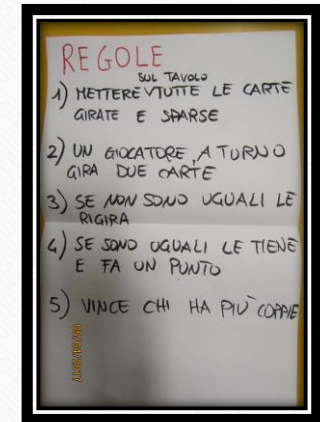 REGOLE
SUL TAVOLO
1) METTERE V TUTTE LE CARTE
GIRATE E SPARSE
2) UN GIOCATORE, A TURNO
GIRA DUE CARTE
3) SE NON SONO UGUALI LE
RIGIRA
4) SE SONO UGUALI LE TIENE
E FA UN PUNTO
5) VINCE CHI HA PIÙ COPPIE